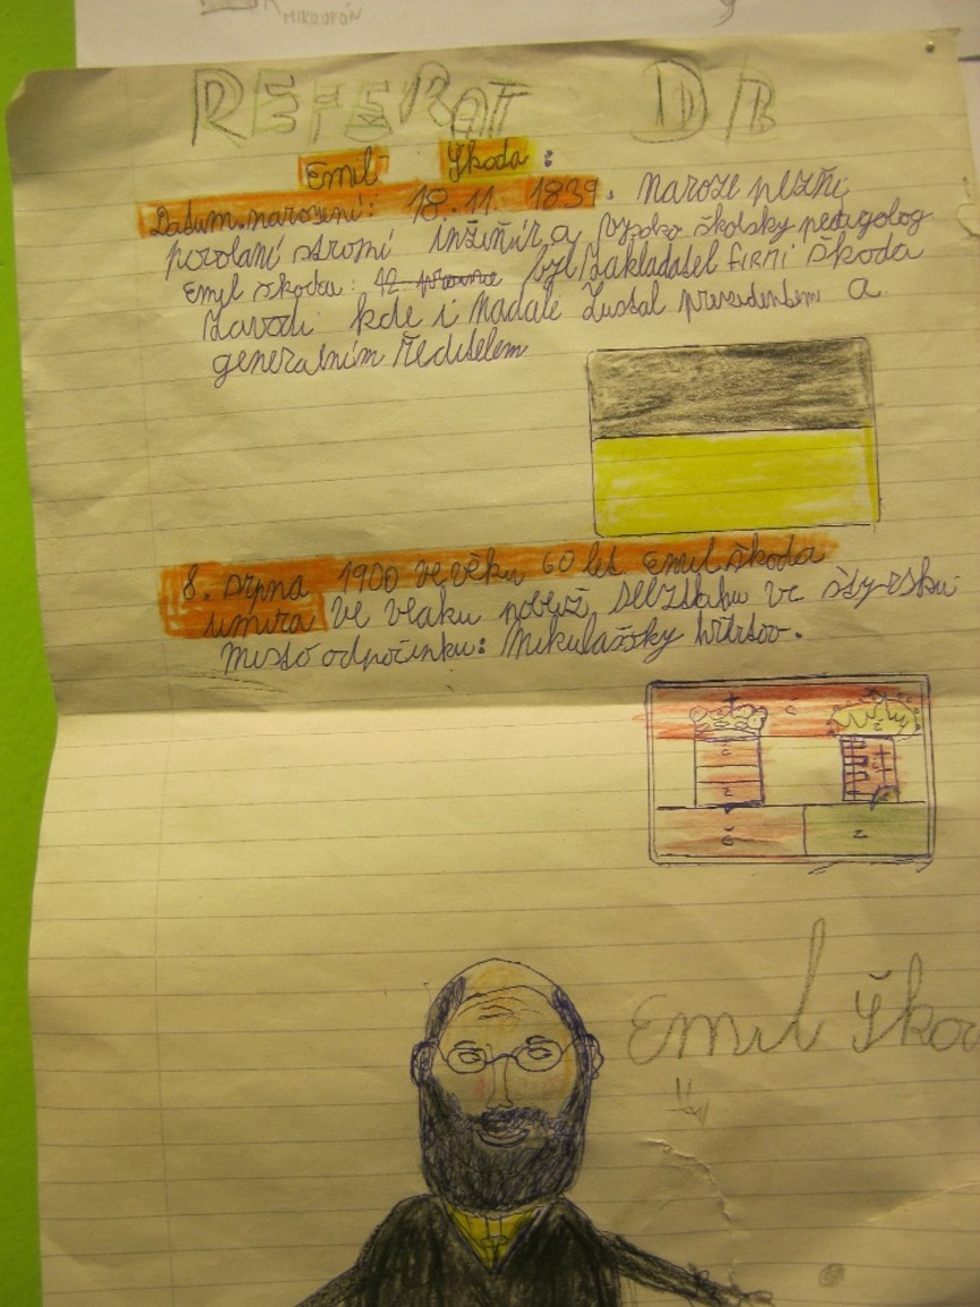 MIKROFÓN
REFERAT DB
Emil Škoda:
Datum narozeni: 18. 11. 1839. Naroze plzňi
povolaní stroní inžiňír, a vysoko školsky pedagolog
Emil škoda: byl Zakladatel FIRMI škoda
Zavodi kde i Nadale Zustal prezidentem a
generalním ředitelem
8. srpna 1900 ve věku 60 let Emil škoda
umira ve vlaku pobevž Selzstahu ve štyrsku
Misto odpočinku: Mikulašsky hřbitov.
č
z
č
z
č
z
Emil Ško